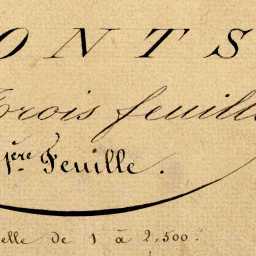 ONTS
Trois feuill
1ère Feuille.
elle de 1 à 2,500.